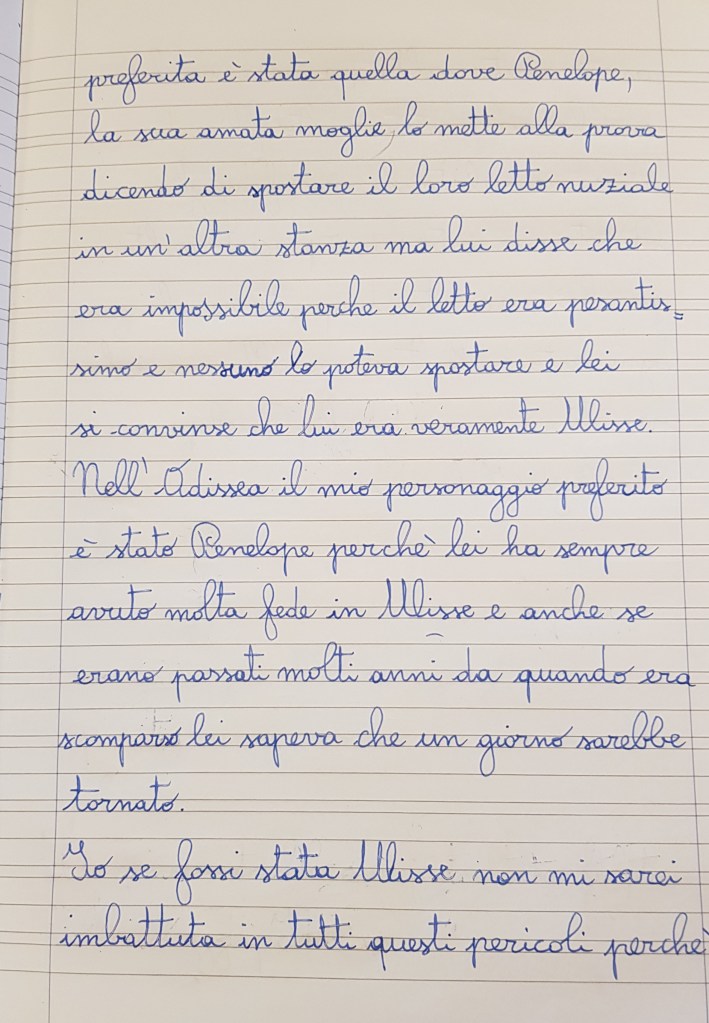 preferita è stata quella dove Penelope,
la sua amata moglie, lo mette alla prova
dicendo di spostare il loro letto nuziale
in un'altra stanza ma lui disse che
era impossibile perche il letto era pesantis=
simo e nessuno lo poteva spostare e lei
si convinse che lui era veramente Ulisse.
Nell'Odissea il mio personaggio preferito
è stato Penelope perchè lei ha sempre
avuto molta fede in Ulisse e anche se
erano passati molti anni da quando era
scomparso lei sapeva che un giorno sarebbe
tornato.
Io se fossi stata Ulisse non mi sarei
imbattuta in tutti questi pericoli perchè